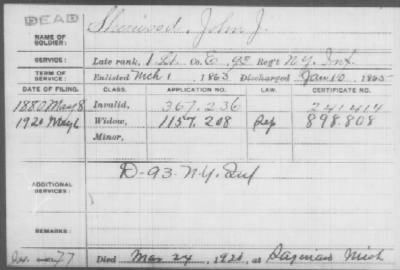 DEAD
NAME OF SOLDIER: Sherwood, John J.
SERVICE: Late rank, 1 Lt. Co. E, 93 Reg't N.Y. Inf.
TERM OF SERVICE: Enlisted Mch 1, 1863 Discharged Jan 10, 1865
DATE OF FILING. CLASS. APPLICATION NO. LAW. CERTIFICATE NO.
1880 May 8 Invalid, 367.236 241414
1920 May 6 Widow, 1157.208 898.808
Minor,
ADDITIONAL SERVICES: D-93-N.Y. Inf
REMARKS:
Died Mar 24, 1920, at Saginaw Mich